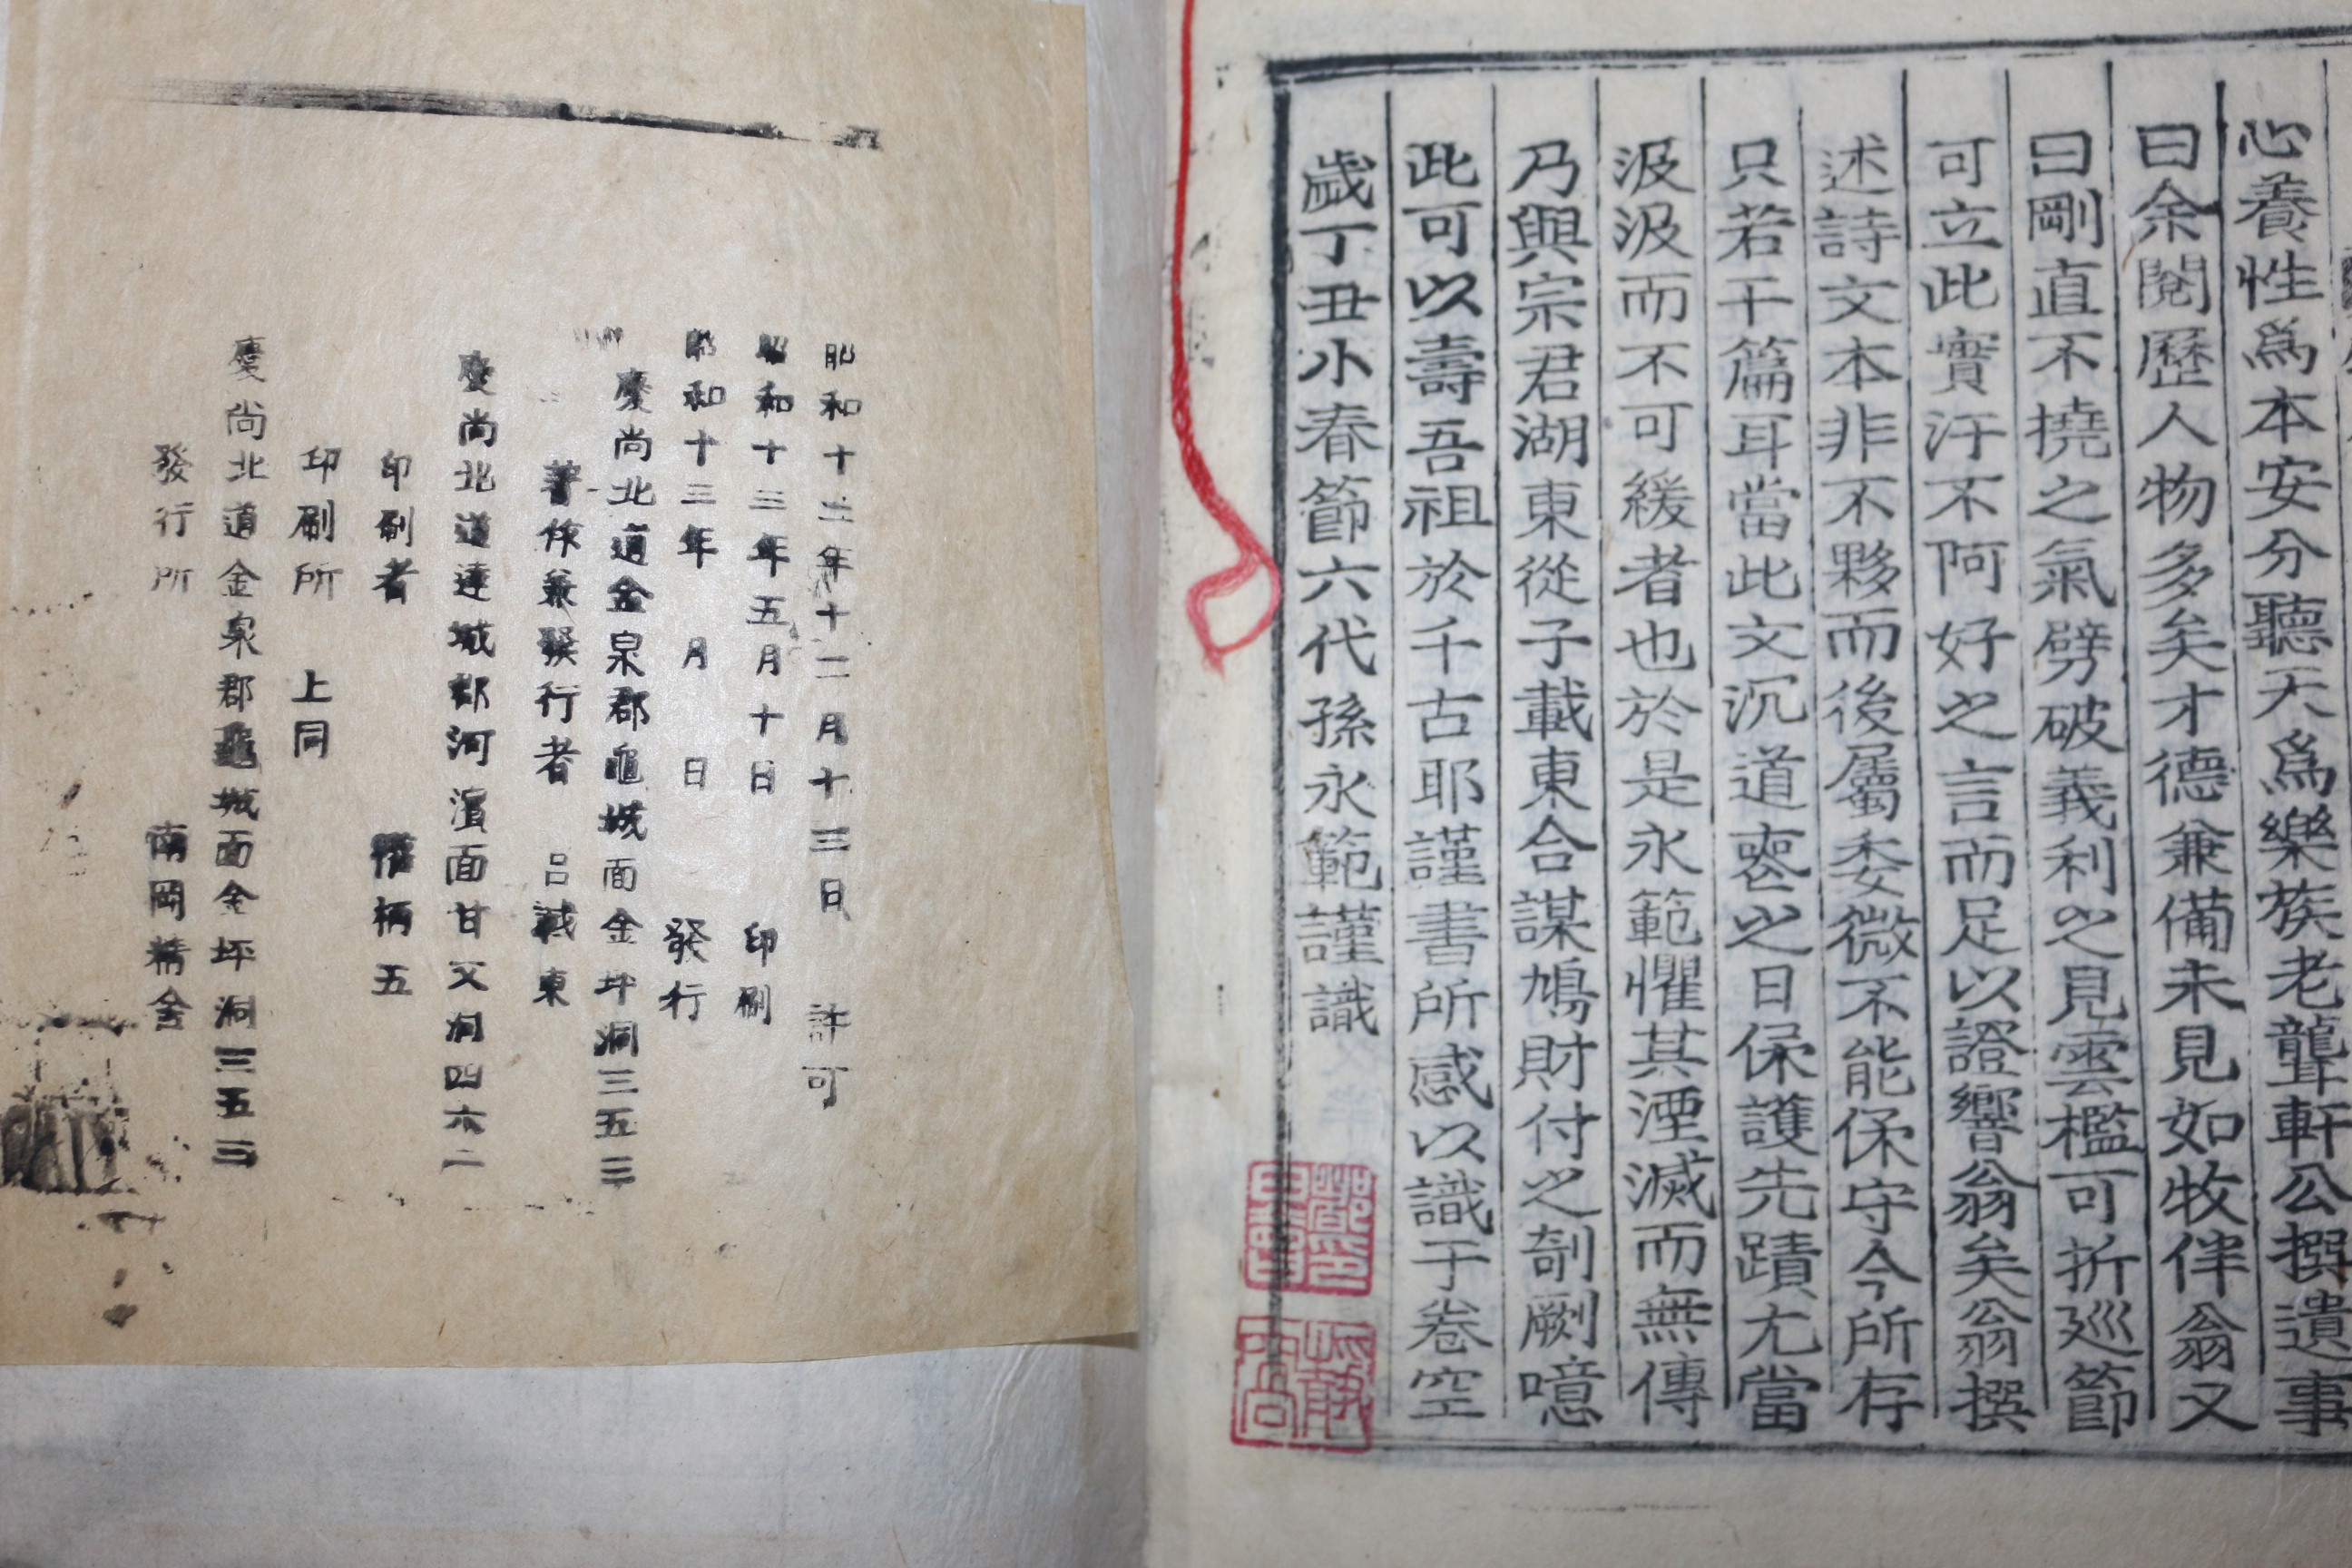 心養性爲本安分聽天爲樂族老聾軒公撰遺事
曰余閱歷人物多矣才德兼備未見如牧伴翁又
曰剛直不撓之氣劈破義利之見雲檻可折巡節
可立此實汙不阿好之言而足以證響翁矣翁撰
述詩文本非不夥而後屬委微不能保守今所存
只若干篇耳當此文沉道喪之日保護先蹟尤當
汲汲而不可緩者也於是永範懼其湮滅而無傳
乃與宗君湖東從子載東合謀鳩財付之剞劂噫
此可以壽吾祖於千古耶謹書所感以識于卷空
歲丁丑小春節六代孫永範謹識
昭和十二年十二月十三日 許可
昭和十三年五月十日 印刷
昭和十三年 月 日 發行
慶尚北道金泉郡龜城面金坪洞三五三
著作兼發行者 呂載東
慶尚北道達城郡河濱面甘文洞四六二
印刷者 權柄五
印刷所 上同
慶尚北道金泉郡龜城面金坪洞三五三
發行所 南岡精舍